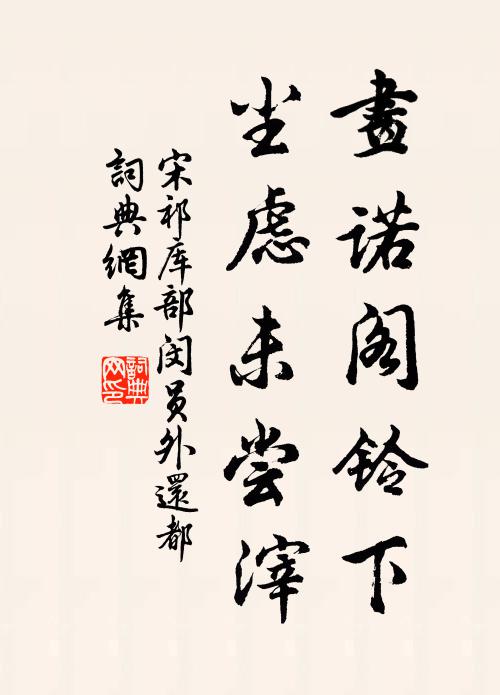 畫諾阁铃下
尘慮未尝滓
宋祁库部闵员外還都
詞典網集
詞典
网印